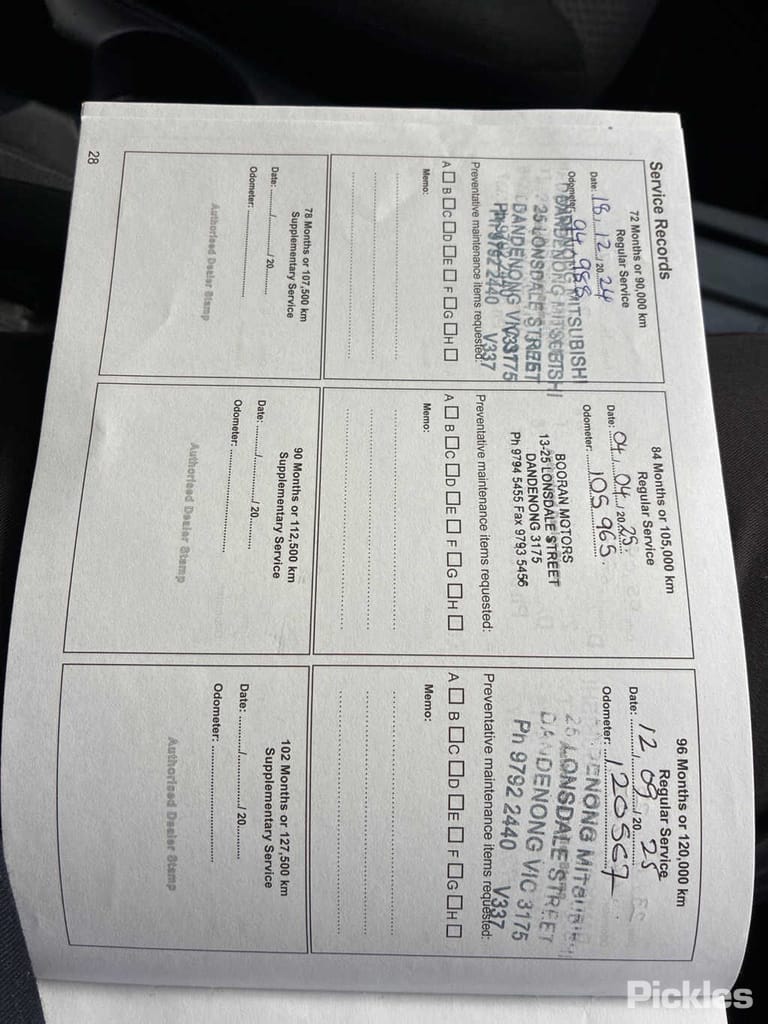 Service Records
72 Months or 90,000 km
Regular Service
Date: 18, 12, 20 24
Odometer: 94 988
DANDENONG MITSUBISHI
25 LONSDALE STREET
DANDENONG VIC 3175
Ph 9792 2440 V337
Preventative maintenance items requested:
A B C D E F G H
Memo:
78 Months or 107,500 km
Supplementary Service
Date: ....../....../ 20......
Odometer: ......
Authorised Dealer Stamp
84 Months or 105,000 km
Regular Service
Date: 04, 04, 20 25.
Odometer: 105 965.
BOORAN MOTORS
13-25 LONSDALE STREET
DANDENONG 3175
Ph 9794 5455 Fax 9793 5456
Preventative maintenance items requested:
A B C D E F G H
Memo:
90 Months or 112,500 km
Supplementary Service
Date: ....../....../ 20......
Odometer: ......
Authorised Dealer Stamp
96 Months or 120,000 km
Regular Service
Date: 12 / 09 / 20 25
Odometer: 120567
DANDENONG MITSUBISHI
25 LONSDALE STREET
DANDENONG VIC 3175
Ph 9792 2440 V337
Preventative maintenance items requested:
A B C D E F G H
Memo:
102 Months or 127,500 km
Supplementary Service
Date: ....../....../ 20......
Odometer: ......
Authorised Dealer Stamp
28
Pickles